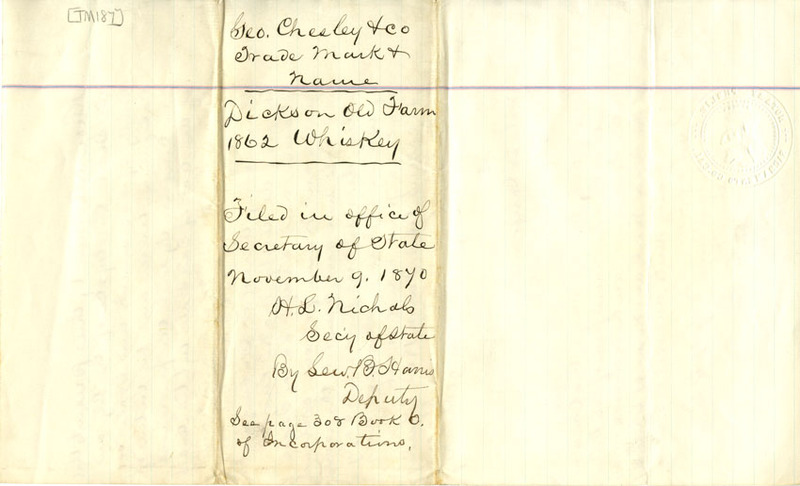 [TM187]
Geo. Chesley & co
Trade Mark &
Name
Dickson Old Farm
1862 Whiskey
Filed in office of
Secretary of State
November 9. 1870
H. L. Nichols
Secy of State
By Lew. B. Harris
Deputy
See page 308 Book O.
of Incorporations.